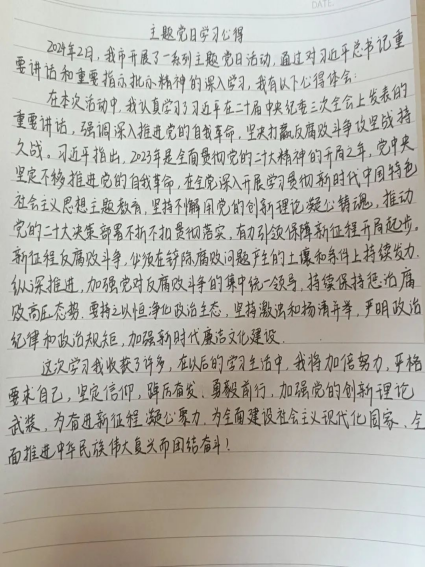 DATE
主题党日学习心得
2024年2月,我市开展了一系列主题党日活动,通过对习近平总书记重
要讲话和重要指示批示精神的深入学习,我有以下心得体会:
在本次活动中,我认真学习了习近平在二十届中央纪委三次全会上发表的
重要讲话,强调深入推进党的自我革命,坚决打赢反腐败斗争攻坚战持
久战。习近平指出,2023年是全面贯彻党的二十大精神的开局之年,党中央
坚定不移推进党的自我革命,在全党深入开展学习贯彻新时代中国特色
社会主义思想主题教育,坚持不懈用党的创新理论凝心铸魂,推动
党的二十大决策部署不折不扣贯彻落实,有力引领保障新征程开局起步。
新征程反腐败斗争,必须在铲除腐败问题产生的土壤和条件上持续发力、
纵深推进,加强党对反腐败斗争的集中统一领导,持续保持惩治腐
败高压态势,要持之以恒净化政治生态,坚持激浊和扬清并举,严明政治
纪律和政治规矩,加强新时代廉洁文化建设.
这次学习我收获了许多,在以后的学习生活中,我将加倍努力,严格
要求自己,坚定信仰,踔厉奋发、勇毅前行,加强党的创新理论
武装,为奋进新征程凝心聚力,为全面建设社会主义现代化国家、全
面推进中华民族伟大复兴而团结奋斗!